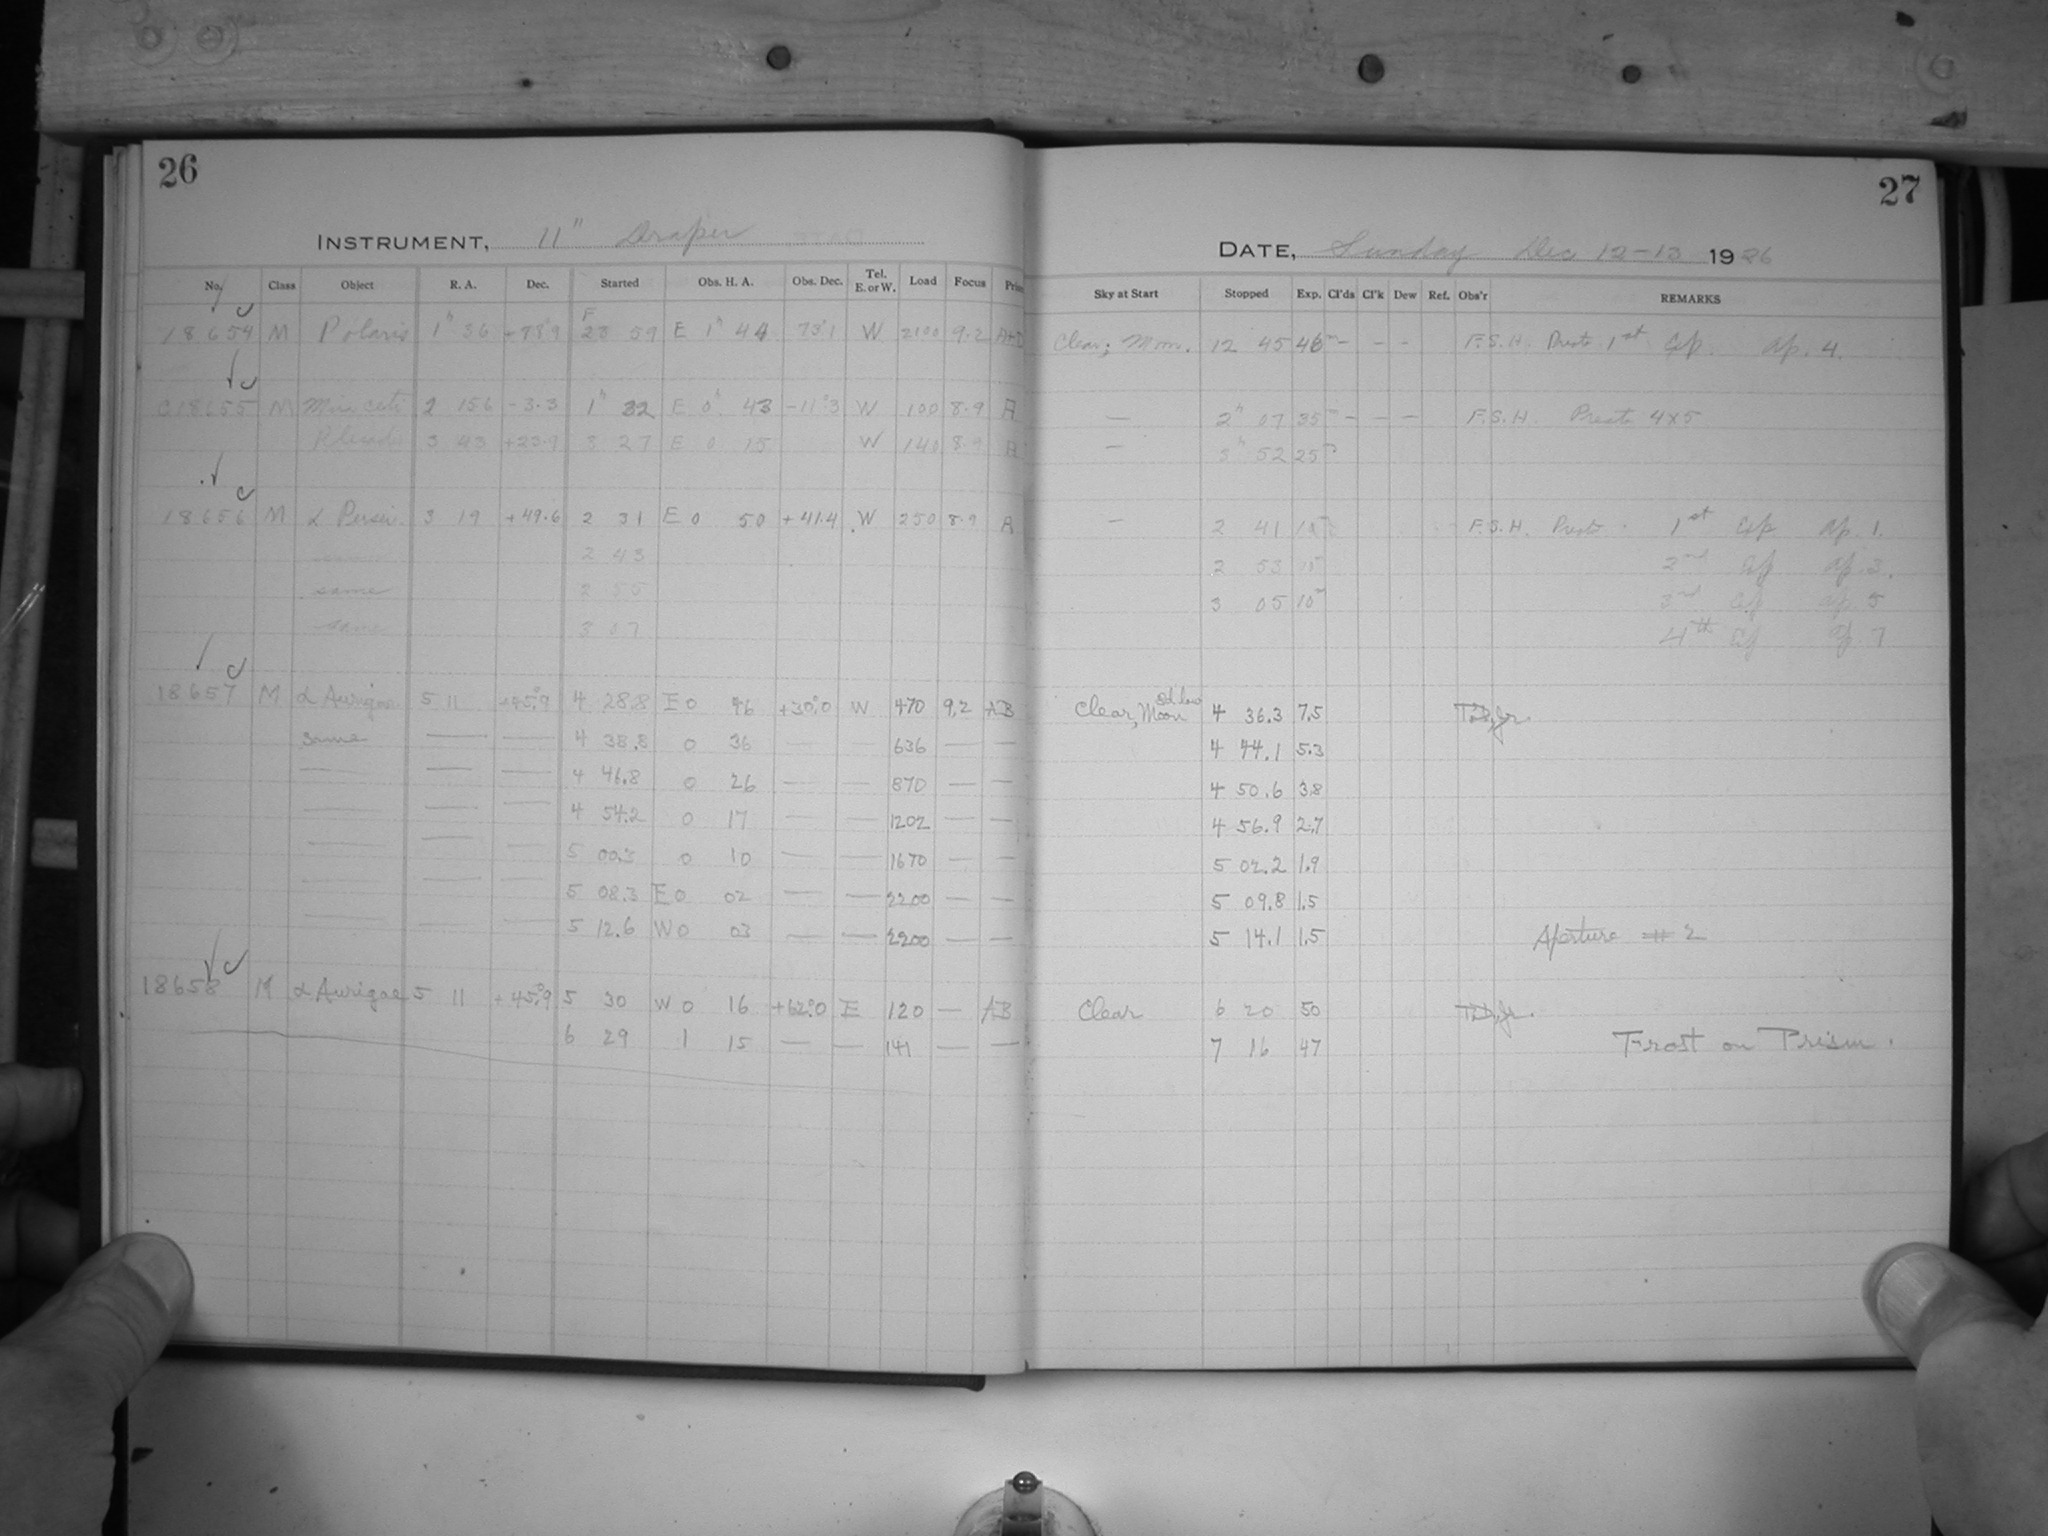 26
INSTRUMENT, 11" Draper
No. Class Object R. A. Dec. Started Obs. H. A. Obs. Dec. Tel. E. or W. Load Focus
18654 M Polaris 1h 36 23 59 E 1h 44 W 2100 9.2
C18655 M 2 156 -3.3 1h 32 E 0h 43 -11°3 W 100 8.9 A
3 43 +23.9 3 27 E 0 15 W 140 8.9 A
18656 M α Persei 3 19 +49.6 2 31 E 0 50 +41.4 W 250 8.9 A
2 43
same
same 3 07
18657 M α Aurigae 5 11 +45°9 4 28.8 E 0 46 +30°0 W 470 9.2 AB
same — — 4 38.8 0 36 — — 636 — —
— — — 4 46.8 0 26 — — 870 — —
— — — 4 54.2 0 17 — — 1202 — —
— — — 5 00.3 0 10 — — 1670 — —
— — — 5 08.3 E 0 02 — — 2200 — —
— — — 5 12.6 W 0 03 — — 2200 — —
18658 M α Aurigae 5 11 +45°9 5 30 W 0 16 +62°0 E 120 — AB
6 29 1 15 — — 141 — —
27
DATE, Sunday Dec 12-13 1926
Sky at Start Stopped Exp. Cl'ds Cl'k Dew Ref. Obs'r REMARKS
Clear; Moon. 12 45 46m - - - F.S.H. 1st Exp. Ap. 4.
— 2h 07 35m - - - F.S.H. 4x5
— 52 25m
— 2 41 10m F.S.H. 1st Exp Ap. 1.
2 53 10m Exp Ap. 3.
3 05 10m Exp Ap. 5
4th Exp Ap. 7
Clear, Moon 4 36.3 7.5
4 44.1 5.3
4 50.6 3.8
4 56.9 2.7
5 02.2 1.9
5 09.8 1.5
5 14.1 1.5 Aperture # 2
Clear 6 20 50
7 16 47 Frost on Prism.